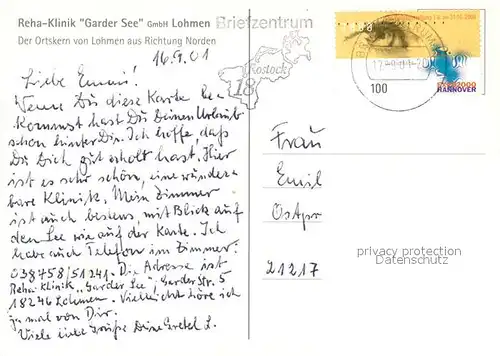 Reha-Klinik "Garder See" GmbH Lohmen
Der Ortskern von Lohmen aus Richtung Norden
Briefzentrum
18
Rostock
100
2000
HANNOVER
16.9.01
Liebe Emmi!
Wenn Du diese Karte be-
kommst hast Du Deinen Urlaub
schon hinter Dir. Ich hoffe, daß
Du Dich gut erholt hast. Hier
ist es sehr schön, eine wunder-
bare Klinik. Mein Zimmer
ist auch bestens, mit Blick auf
den See wie auf der Karte. Ich
habe auch Telefon im Zimmer.
038458/51241. Die Adresse ist
Reha-Klinik "Garder See", Garder Str. 5
18246 Lohmen. Vielleicht höre ich
ja mal von Dir.
Viele liebe Grüße Deine Gretel L.
Frau
Emil
Ostpr
21217
privacy protection
Datenschutz